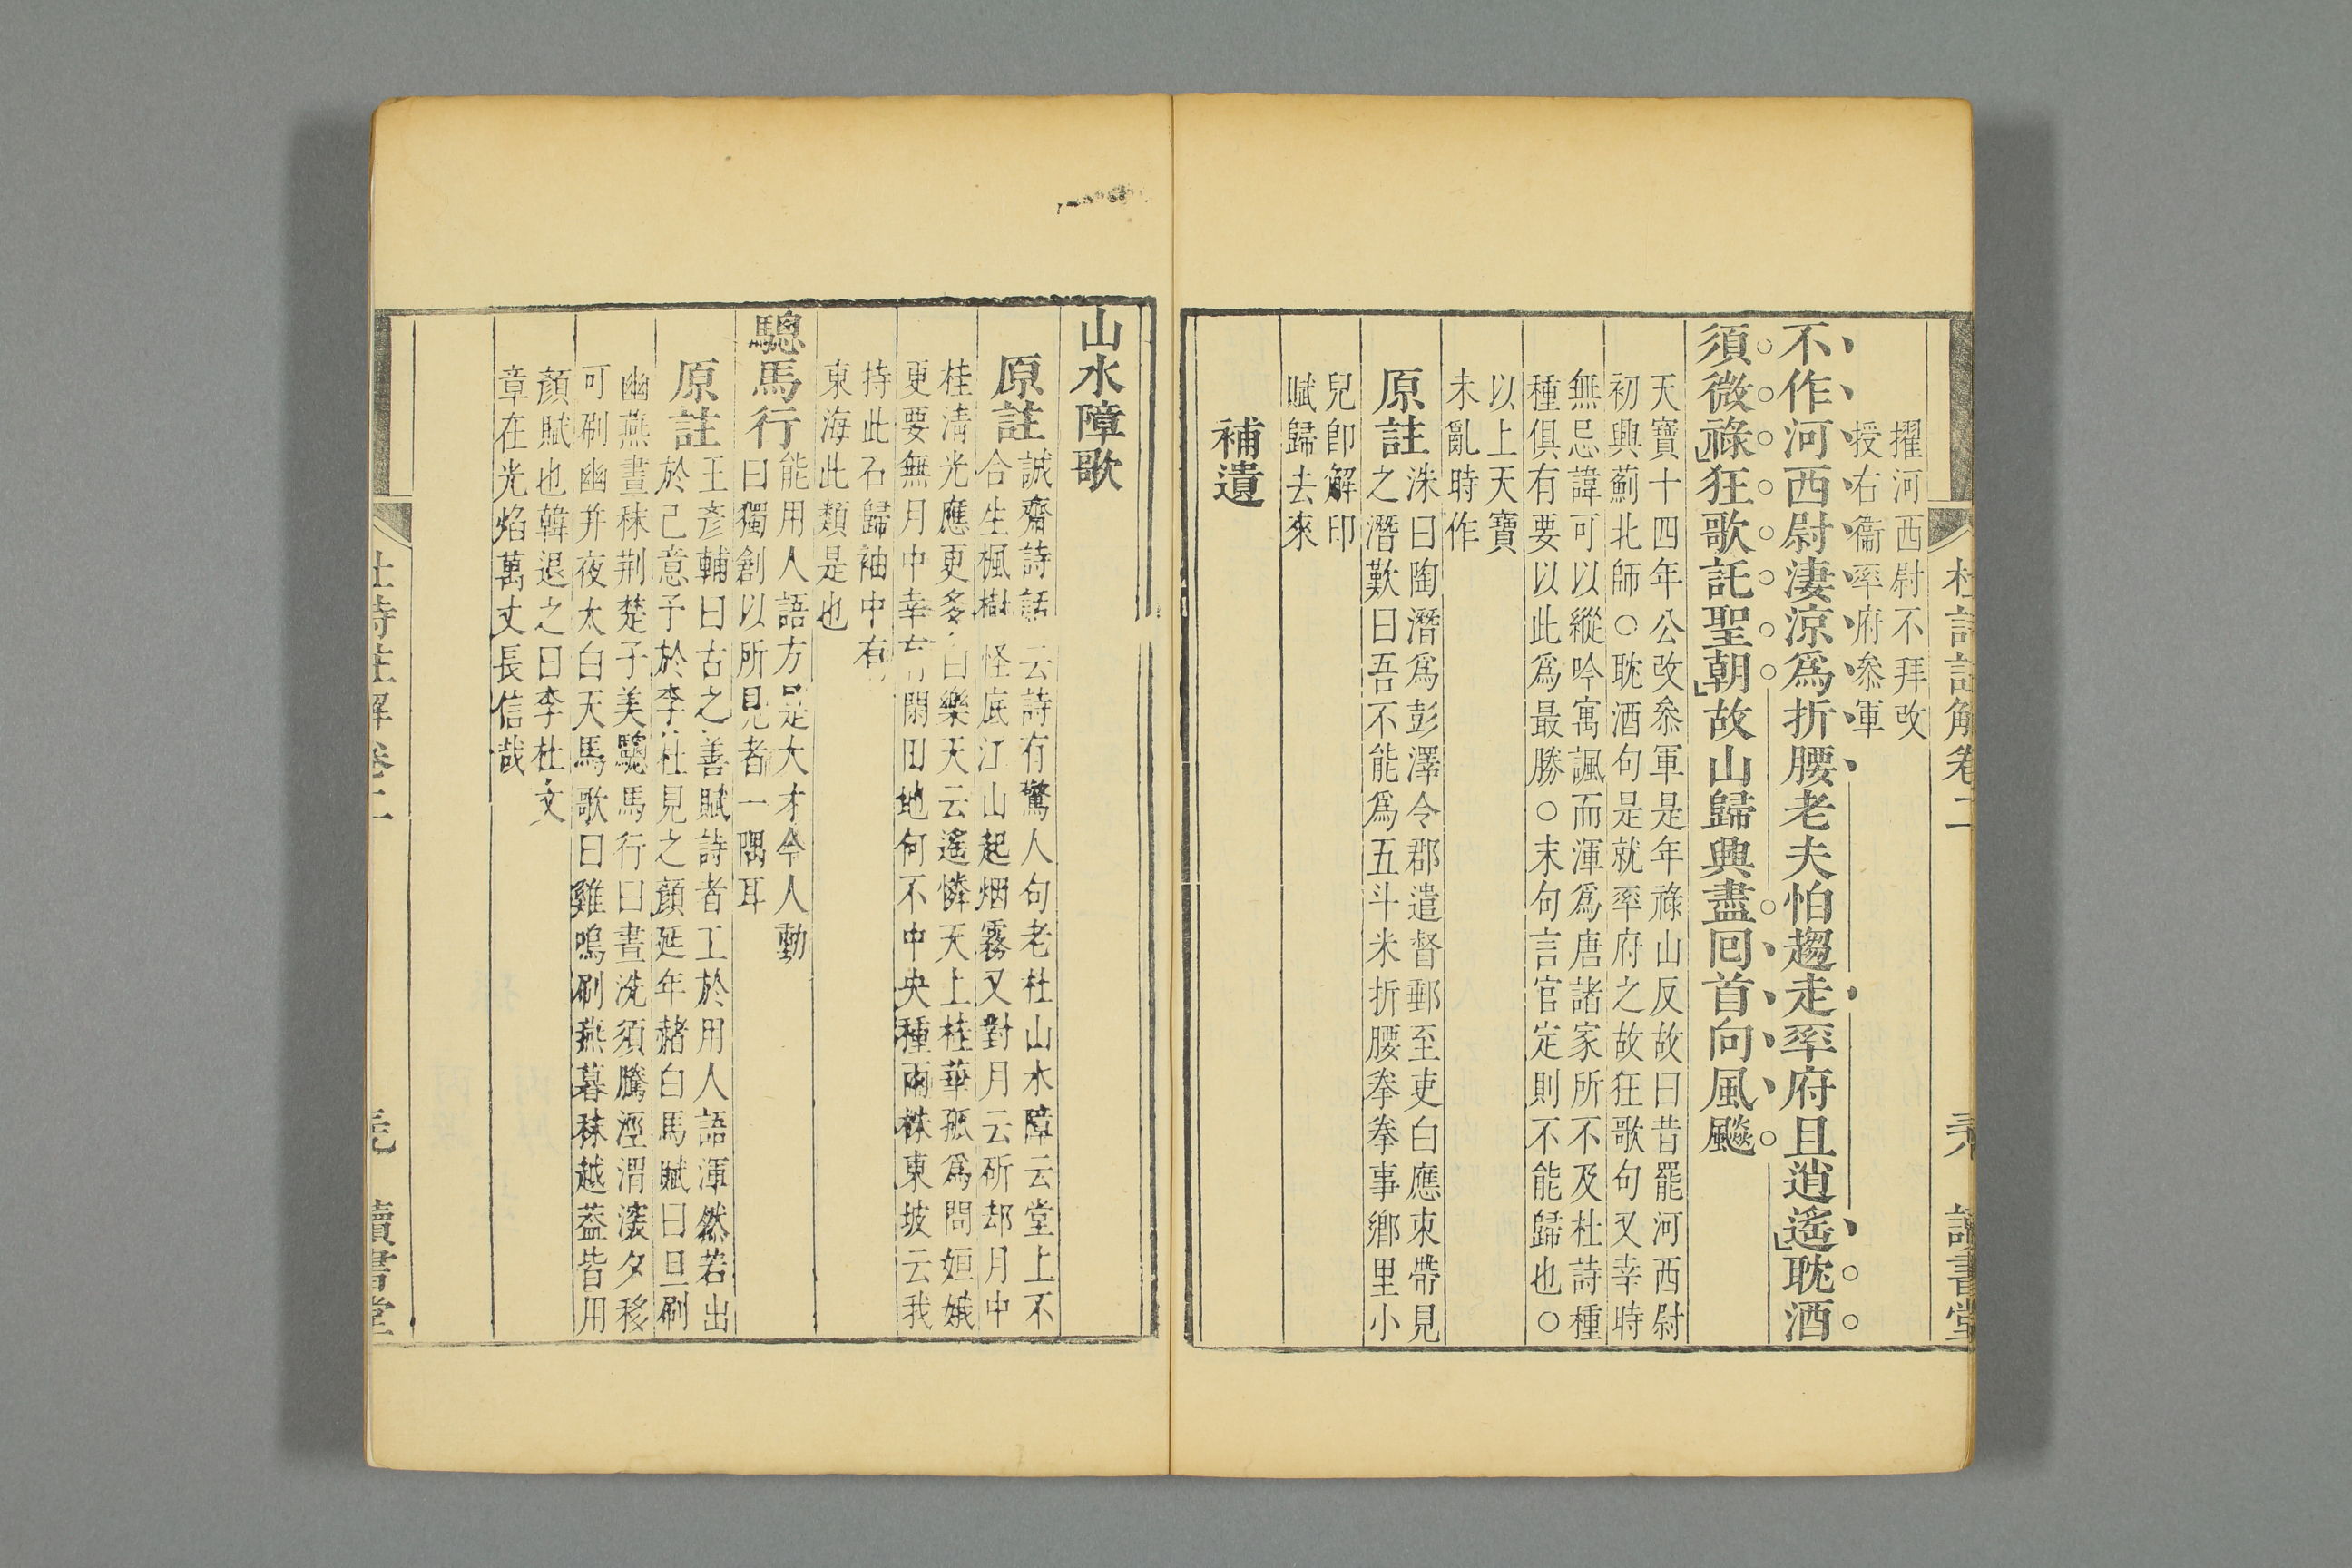 杜詩註解卷二
讀書堂
擢河西尉不拜改
授右衞率府叅軍
不作河西尉淒涼爲折腰老夫怕趨走率府且逍遙耽酒
須微祿狂歌託聖朝故山歸興盡囘首向風飈
天寶十四年公改叅軍是年祿山反故曰昔罷河西尉
初興薊北師○耽酒句是就率府之故狂歌句又幸時
無忌諱可以縱吟寓諷而渾爲唐諸家所不及杜詩種
種俱有要以此爲最勝○末句言官定則不能歸也○
以上天寶
未亂時作
原註
洙曰陶潛爲彭澤令郡遣督郵至吏白應束帶見
之潛歎曰吾不能爲五斗米折腰拳拳事鄉里小
兒卽解印
賦歸去來
補遺
山水障歌
原註
誠齋詩話云詩有驚人句老杜山水障云堂上不
合生楓樹怪底江山起烟霧又對月云斫却月中
桂淸光應更多白樂天云遙憐天上桂華孤爲問姮娥
更要無月中幸有閒田地何不中央種兩株東坡云我
持此石歸袖中有
東海此類是也
驄馬行
能用人語方是大才今人動
曰獨創以所見者一隅耳
原註
王彥輔曰古之善賦詩者工於用人語渾然若出
於己意予於李杜見之顏延年赭白馬賦曰旦刷
幽燕晝秣荆楚子美驄馬行曰晝洗須騰涇渭深夕移
可刷幽幷夜太白天馬歌曰雞鳴刷燕暮秣越葢皆用
顏賦也韓退之曰李杜文
章在光焰萬丈長信哉
杜詩註解卷二
讀書堂